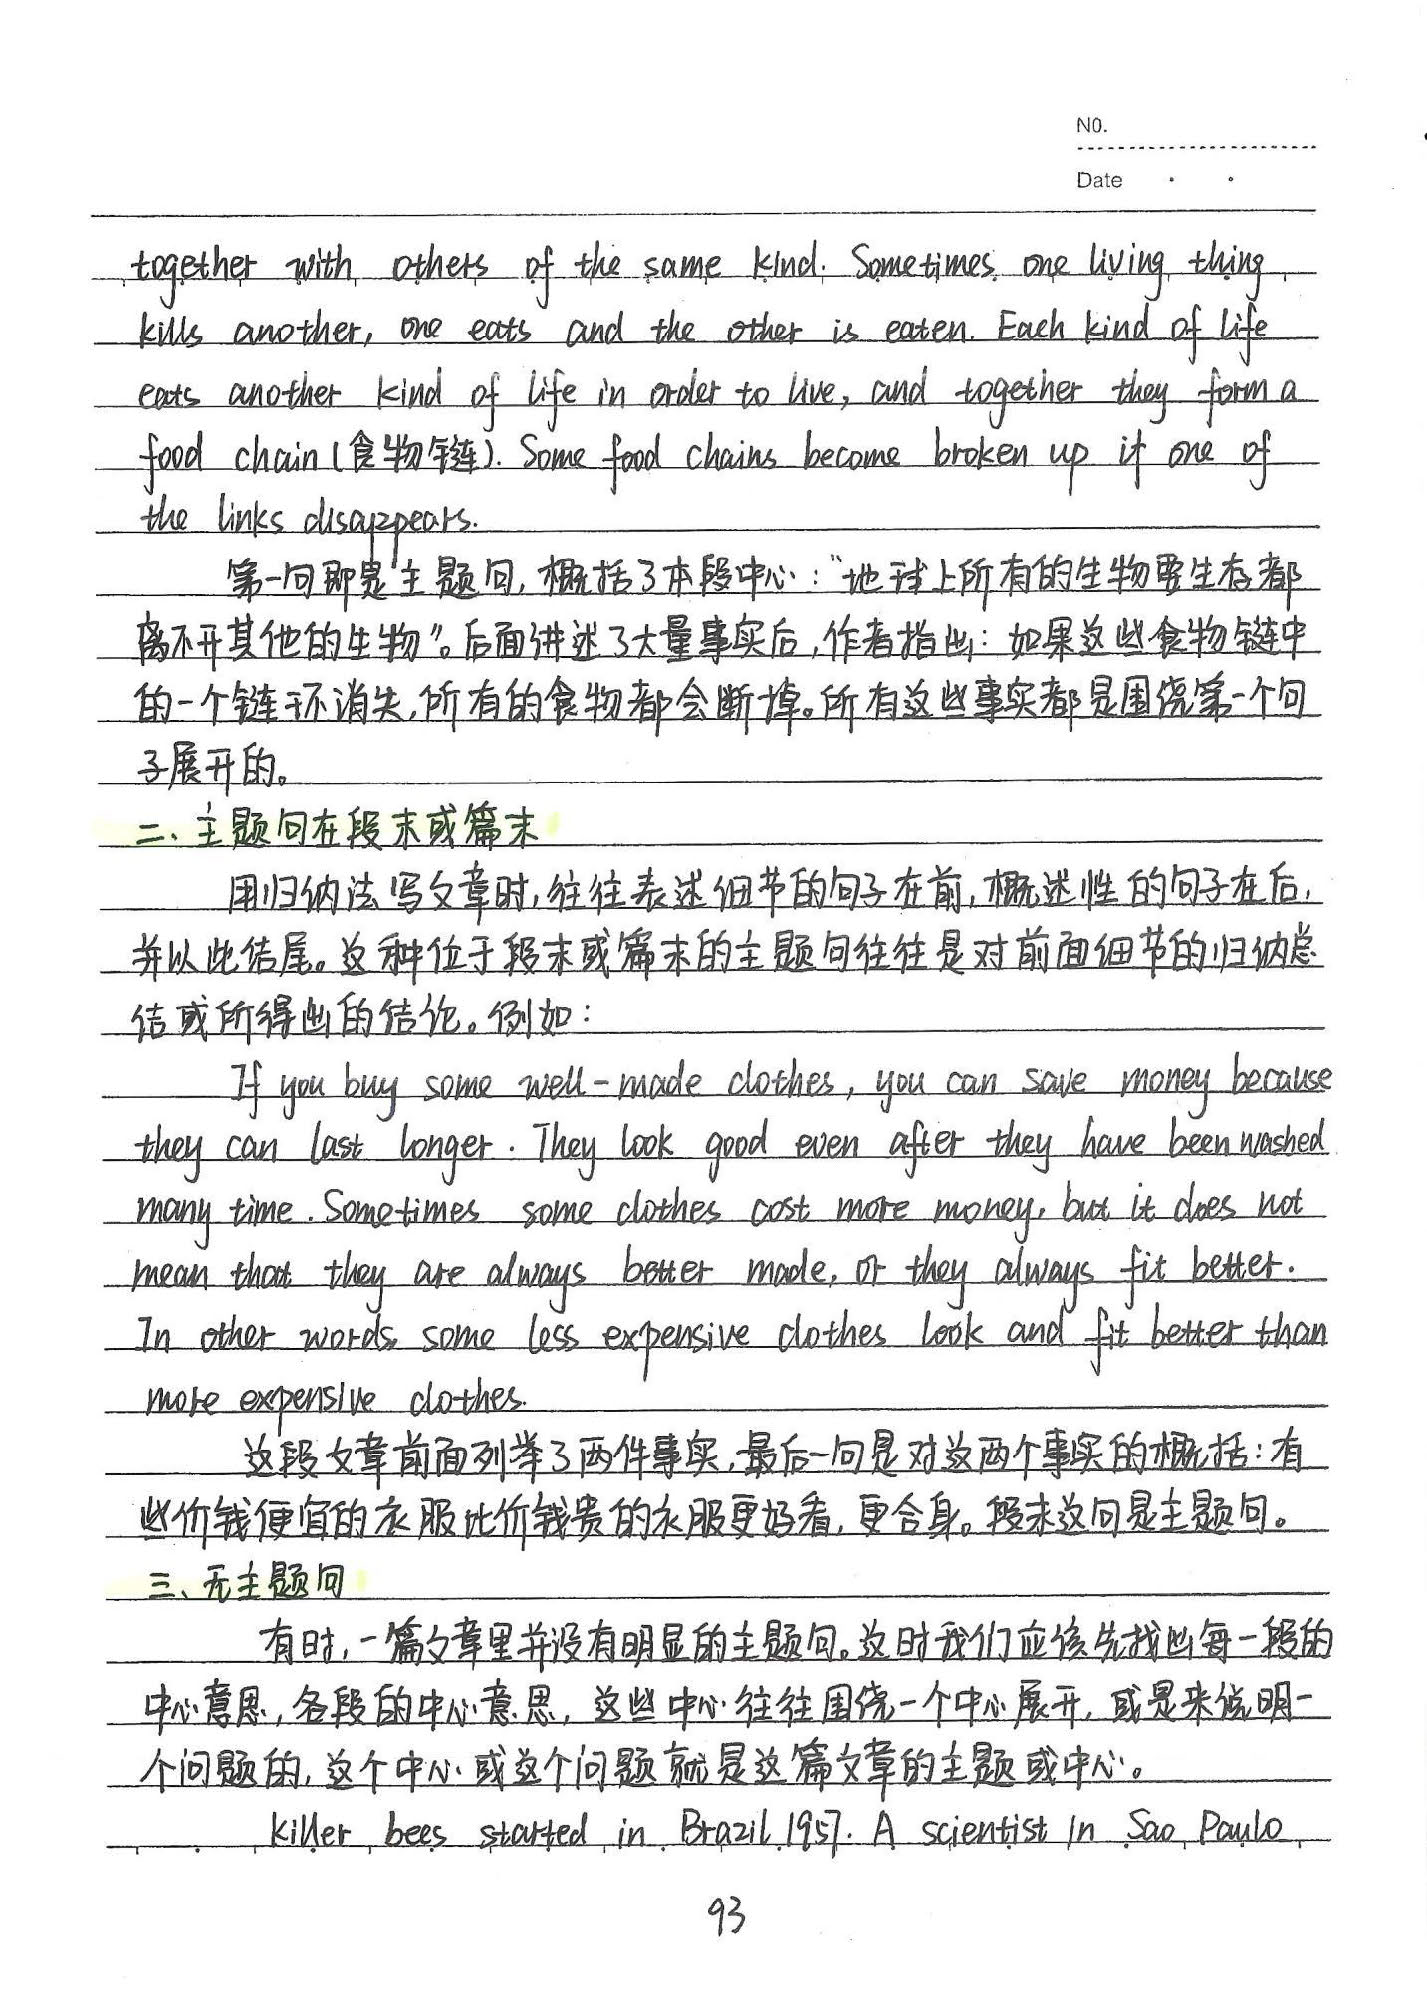 N0.
Date
together with others of the same kind. Sometimes one living thing
kills another, one eats and the other is eaten. Each kind of life
eats another kind of life in order to live, and together they form a
food chain(食物链). Some food chains become broken up if one of
the links disappears.
第一句即是主题句,概括了本段中心:“地球上所有的生物要生存都
离不开其他的生物”。后面讲述了大量事实后,作者指出:如果这些食物链中
的一个链环消失,所有的食物都会断掉。所有这些事实都是围绕第一个句
子展开的。
二、主题句在段末或篇末
用归纳法写文章时,往往表述细节的句子在前,概述性的句子在后,
并以此结尾。这种位于段末或篇末的主题句往往是对前面细节的归纳总
结或所得出的结论。例如:
If you buy some well-made clothes, you can save money because
they can last longer. They look good even after they have been washed
many time. Sometimes some clothes cost more money, but it does not
mean that they are always better made, or they always fit better.
In other words, some less expensive clothes look and fit better than
more expensive clothes.
这段文章前面列举了两件事实,最后一句是对这两个事实的概括:有
些价钱便宜的衣服比价钱贵的衣服更好看,更合身。段末这句是主题句。
三、无主题句
有时,一篇文章里并没有明显的主题句。这时我们应该先找出每一段的
中心意思,各段的中心意思,这些中心往往围绕一个中心展开,或是来说明一
个问题的,这个中心或这个问题就是这篇文章的主题或中心。
Killer bees started in Brazil 1957. A scientist in Sao Paulo
93